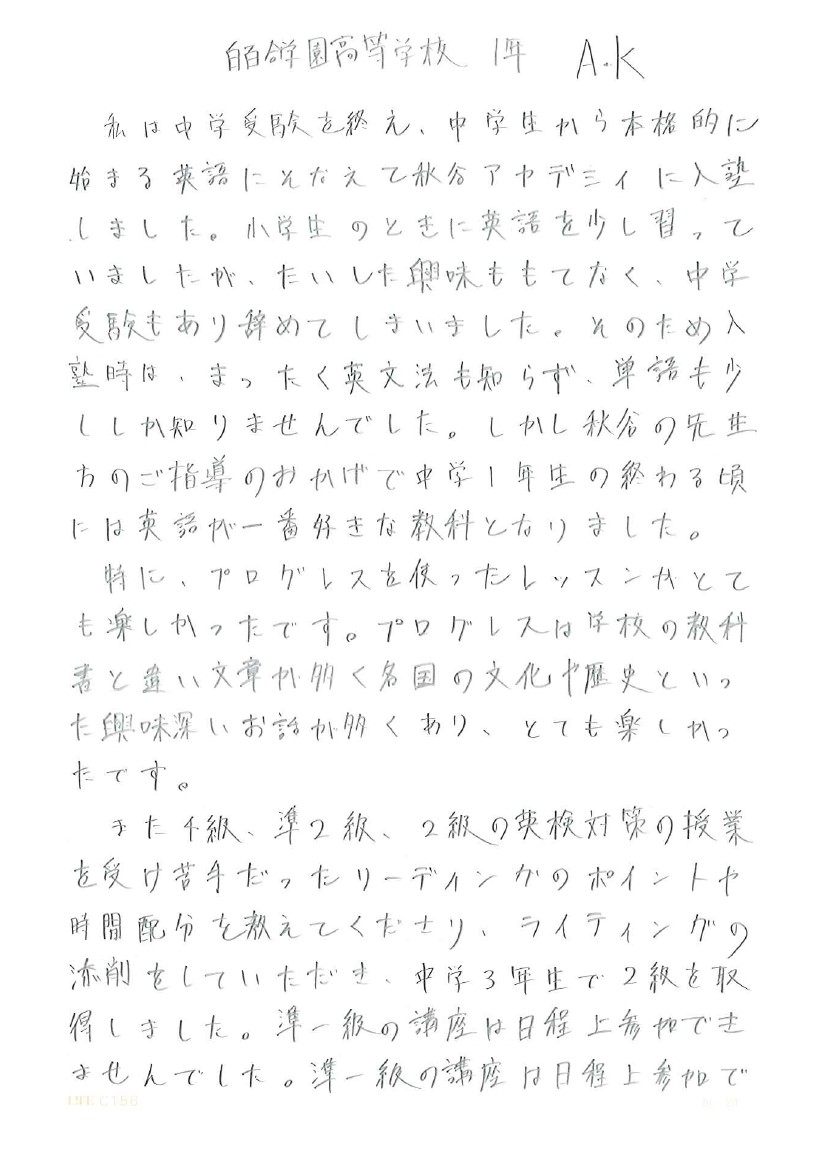 白百合学園高等学校 1年 A.K
私は中学受験を終え、中学生から本格的に
始まる英語にそなえて秋谷アカデミィに入塾
しました。小学生のときに英語を少し習って
いましたが、たいした興味ももてなく、中学
受験もあり辞めてしまいました。そのため入
塾時は、まったく英文法も知らず、単語も少
ししか知りませんでした。しかし秋谷の先生
方のご指導のおかげで中学1年生の終わる頃
には英語が一番好きな教科となりました。
特に、プログレスを使ったレッスンがとて
も楽しかったです。プログレスは学校の教科
書と違い文章が多く各国の文化や歴史といっ
た興味深いお話が多くあり、とても楽しかっ
たです。
また4級、準2級、2級の英検対策の授業
を受け苦手だったリーディングのポイントや
時間配分を教えてくださり、ライティングの
添削をしていただき、中学3年生で2級を取
得しました。準一級の講座は日程上参加でき
ませんでした。準一級の講座は日程上参加で
LIFE C156